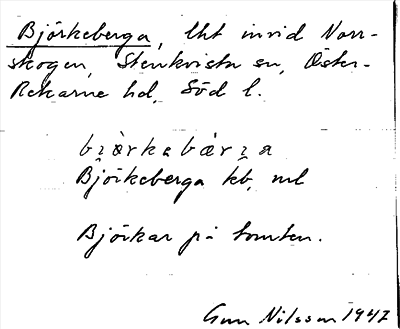 Björkeberga, lht invid Norr-
skogen, Stenkvista sn, Öster-
Rekarne hd, Söd l.
Björkeberga kb, ml
Björkar på tomten.
Gun Nilsson 1947